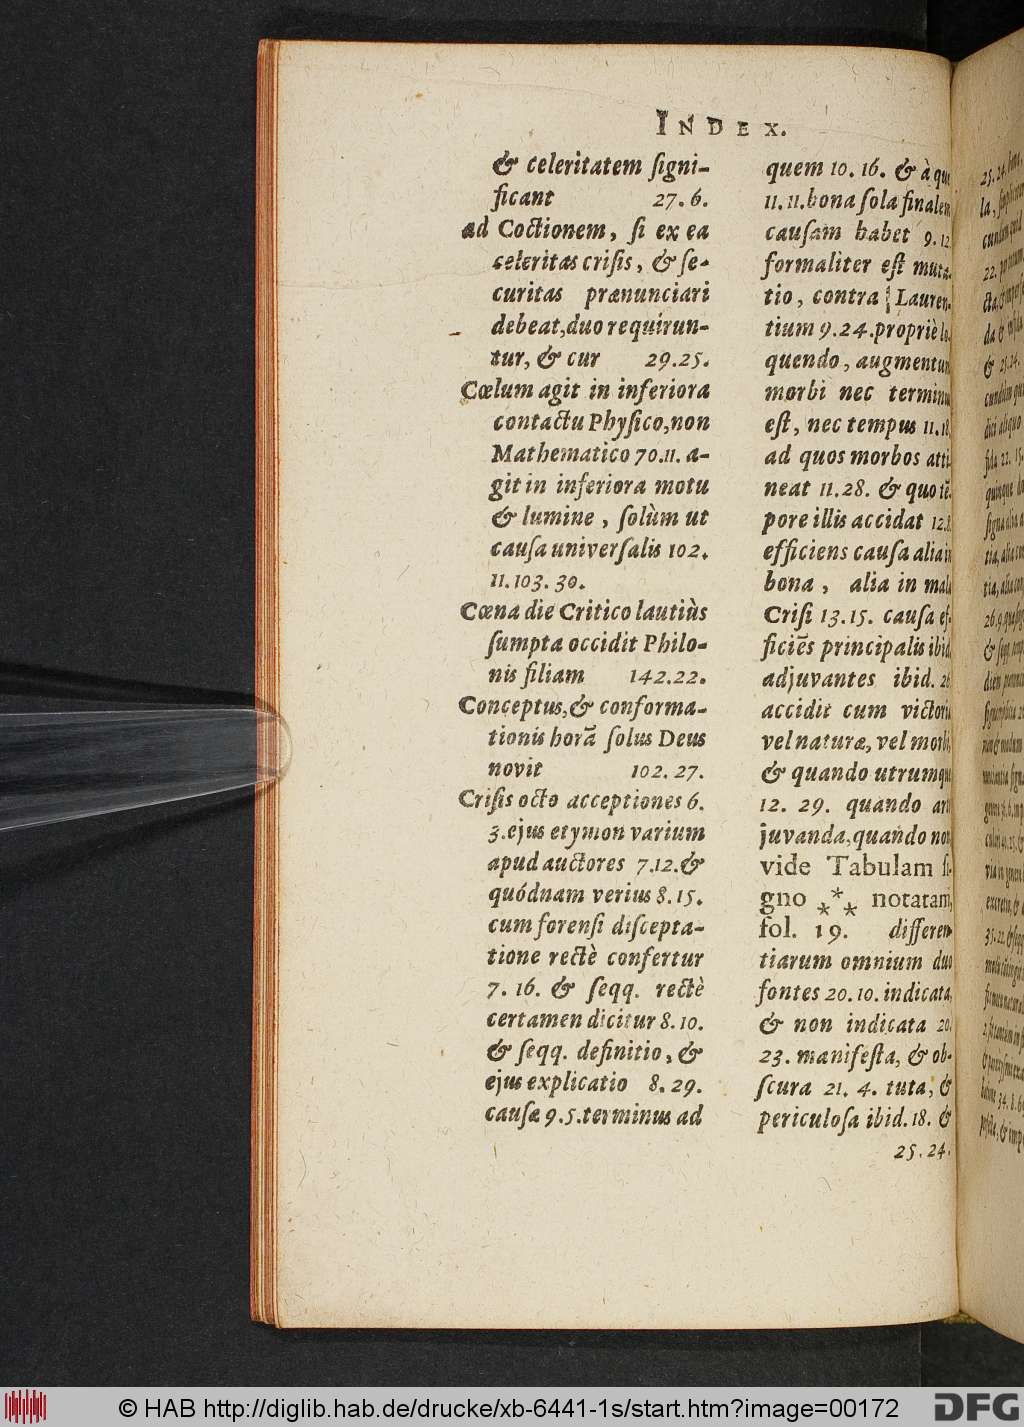 INDEX.
& celeritatem ſigni-
ficant 27. 6.
ad Coctionem, ſi ex ea
celeritas criſis, & ſe-
curitas prænunciari
debeat, duo requirun-
tur, & cur 29. 25.
Cœlum agit in inferiora
contactu Phyſico, non
Mathematico 70. 11. a-
git in inferiora motu
& lumine, ſolùm ut
cauſa univerſalis 102.
11. 103. 30.
Cœna die Critico lautiùs
ſumpta occidit Philo-
nis filiam 142. 22.
Conceptus, & conforma-
tionis horā ſolus Deus
novit 102. 27.
Criſis octo acceptiones 6.
3. ejus etymon varium
apud auctores 7. 12. &
quódnam verius 8. 15.
cum forenſi diſcepta-
tione rectè confertur
7. 16. & ſeqq. rectè
certamen dicitur 8. 10.
& ſeqq. definitio, &
ejus explicatio 8. 29.
cauſæ 9. 5. terminus ad
quem 10. 16. & à quo
11. 11. bona ſola finalem
cauſam habet 9. 12
formaliter eſt muta-
tio, contra Lauren-
tium 9. 24. propriè lo-
quendo, augmentum
morbi nec terminus
eſt, nec tempus 11. 18.
ad quos morbos atti-
neat 11. 28. & quo tē-
pore illis accidat 12. 8.
efficiens cauſa alia in
bona, alia in mala
Criſi 13. 15. cauſa ef-
ficiēs principalis ibid.
adjuvantes ibid. 26.
accidit cum victoria
vel naturæ, vel morbi,
& quando utrumque
12. 29. quando
juvanda, quando non
vide Tabulam ſi-
gno *⁎* notatam,
fol. 19. differen-
tiarum omnium duo
fontes 20. 10. indicata,
& non indicata 20.
23. manifeſta, & ob-
ſcura 21. 4. tuta, &
periculoſa ibid. 18. &
25. 24.
© HAB http://diglib.hab.de/drucke/xb-6441-1s/start.htm?image=00172
DFG